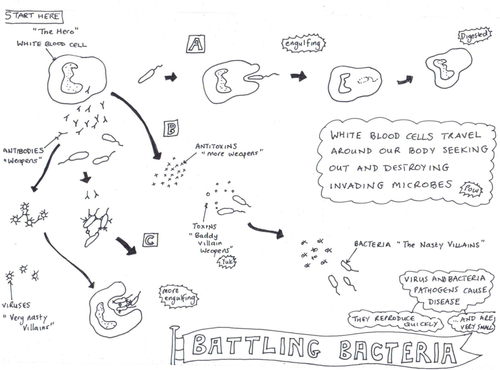 START HERE
"The Hero"
WHITE BLOOD CELL
A
engulfing
Digested
B
ANTIBODIES
"Weapons"
ANTITOXINS
"more weapons"
WHITE BLOOD CELLS TRAVEL
AROUND OUR BODY SEEKING
OUT AND DESTROYING
INVADING MICROBES
TOXINS
"Baddy
villain
Weapons"
Yuk
C
BACTERIA "The Nasty Villains"
VIRUSES
"Very nasty
villains"
more
engulfing
VIRUS AND BACTERIA
PATHOGENS CAUSE
DISEASE
THEY REPRODUCE
QUICKLY
AND ARE
VERY SMALL
BATTLING BACTERIA